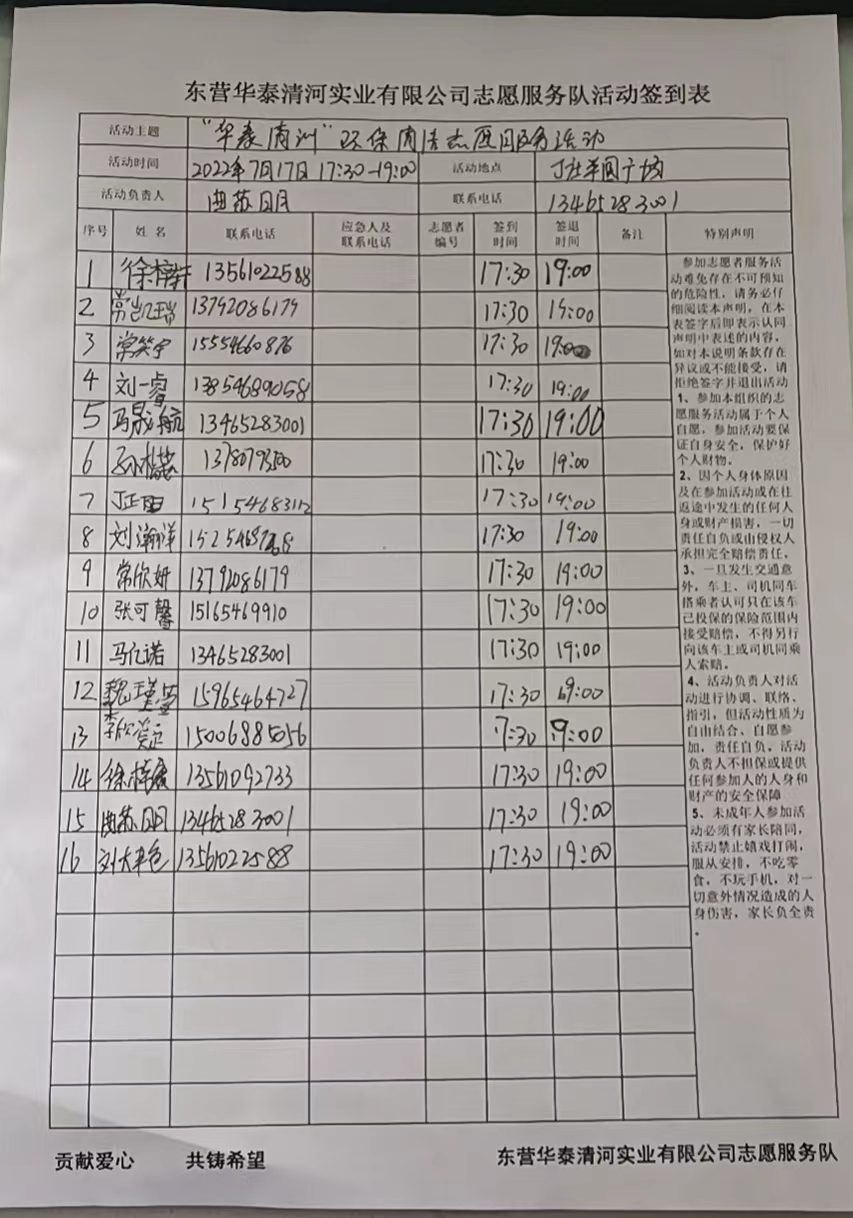 东营华泰清河实业有限公司志愿服务队活动签到表
活动主题 "华泰清洲"环保清洁志愿服务活动
活动时间 2022年7月17日 17:30-19:00 活动地点 丁社军园广场
活动负责人 曲苏日月 联系电话 13465283001
序号 姓名 联系电话 应急人及联系电话 志愿者编号 签到时间 签退时间 备注 特别声明
1 徐梓轩 13561022588 17:30 19:00
2 常凯瑞 13792086179 17:30 19:00
3 常笑宇 15554660876 17:30 19:00
4 刘一睿 13854689058 17:30 19:00
5 马晟航 13465283001 17:30 19:00
6 17:30 19:00
7 丁正阳 15154683112 17:30 19:00
8 刘瀚洋 17:30 19:00
9 常欣妍 13792086179 17:30 19:00
10 张可馨 15165469910 17:30 19:00
11 马亿诺 13465283001 17:30 19:00
12 魏瑾萱 15965464727 17:30 19:00
13 15006885056 17:30 19:00
14 13561092733 17:30 19:00
15 曲苏日月 13465283001 17:30 19:00
16 13561022588 17:30 19:00
参加志愿者服务活
动难免存在不可预知
的危险性，请务必仔
细阅读本声明，在本
表签字后即表示认同
声明中表述的内容，
如对本说明条款存在
异议或不能接受，请
拒绝签字并退出活动
1、参加本组织的志
愿服务活动属于个人
自愿，参加活动要保
证自身安全，保护好
个人财物。
2、因个人身体原因
及在参加活动或在往
返途中发生的任何人
身或财产损害，一切
责任自负或由侵权人
承担完全赔偿责任，
3、一旦发生交通意
外，车主、司机同车
搭乘者认可只在该车
已投保的保险范围内
接受赔偿，不得另行
向该车主或司机同乘
人索赔。
4、活动负责人对活
动进行协调、联络、
指引，但活动性质为
自由结合、自愿参
加，责任自负，活动
负责人不担保或提供
任何参加人的人身和
财产的安全保障
5、未成年人参加活
动必须有家长陪同，
活动禁止嬉戏打闹，
服从安排，不吃零
食，不玩手机，对一
切意外情况造成的人
身伤害，家长负全责
。
贡献爱心 共铸希望 东营华泰清河实业有限公司志愿服务队